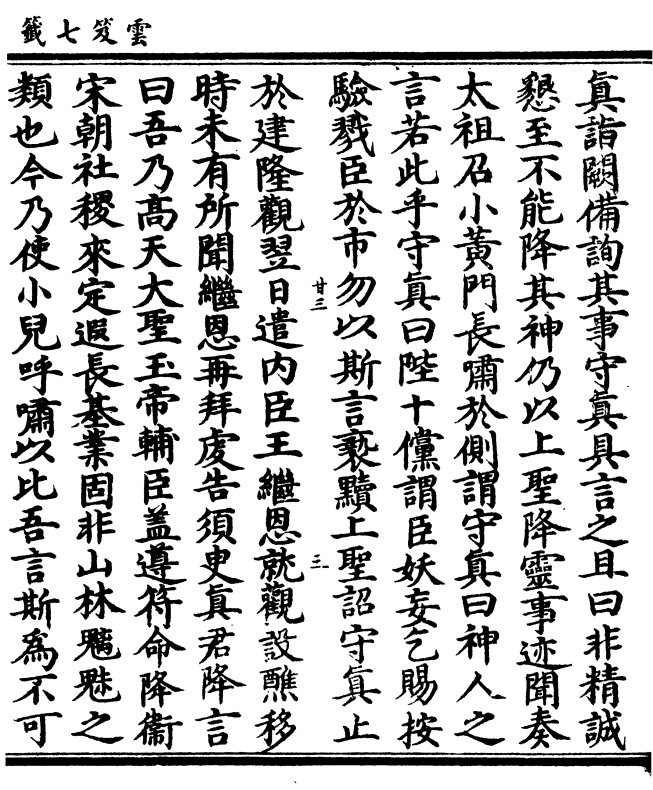 雲笈七籤
眞詣闕備詢其事守眞具言之且曰非精誠
懇至不能降其神仍以上聖降靈事迹聞奏
太祖召小黃門長嘯於側謂守眞曰神人之
言若此乎守眞曰陛十儻謂臣妖妄乞賜按
驗戮臣於市勿以斯言褻黷上聖詔守眞止
廿三
三
於建隆觀翌日遣內臣王繼恩就觀設醮移
時未有所聞繼恩再拜虔告須臾眞君降言
曰吾乃高天大聖玉帝輔臣蓋遵符命降衞
宋朝社稷來定遐長基業固非山林魑魅之
類也今乃使小兒呼嘯以比吾言斯爲不可